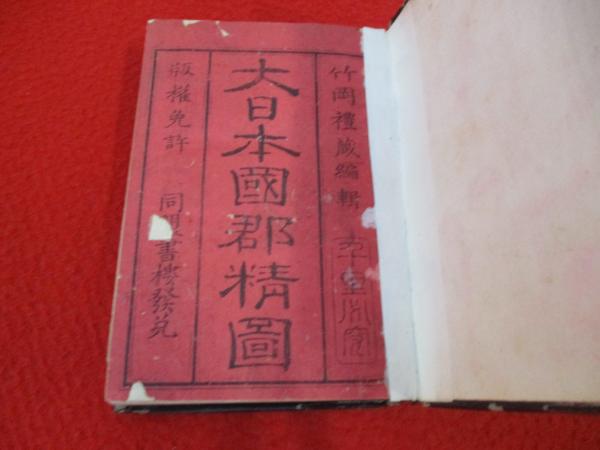 竹岡禮蔵編輯
大日本國郡精圖
版權免許
同盟書樓發兌